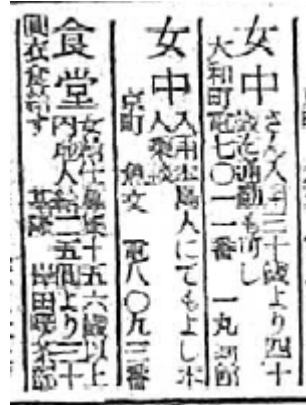 女中
さん入用二十歳より四十
歳迄通勤も可し
大和町 電七〇一一番 一丸旅館
女中
入用本島人にてもよし本
人來談
京町 魚文 電八〇九三番
食堂
女給仕募集十五六歳以上
内地人給二五圓より三十
圓衣食給す 基隆 岸田喫茶部